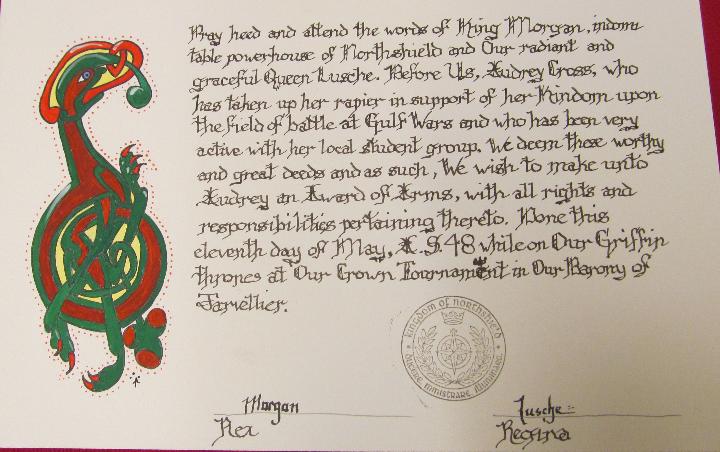 Pray heed and attend the words of King Morgan, indomi
table powerhouse of Northshield and Our radiant and
graceful Queen Lusche. Before Us, Audrey Cross, who
has taken up her rapier in support of her Kindom upon
the field of battle at Gulf Wars and who has been very
active with her local student group. We deem these worthy
and great deeds and as such, We wish to make unto
Audrey an Award of Arms, with all rights and
responsibilities pertaining thereto. Done this
eleventh day of May, A.S. 48 while on Our Griffin
thrones at Our Crown Tournament in Our Barony of
Jarvellier.
kingdom of northshield
ministrare
Morgan
Lusche
Rex
Regina